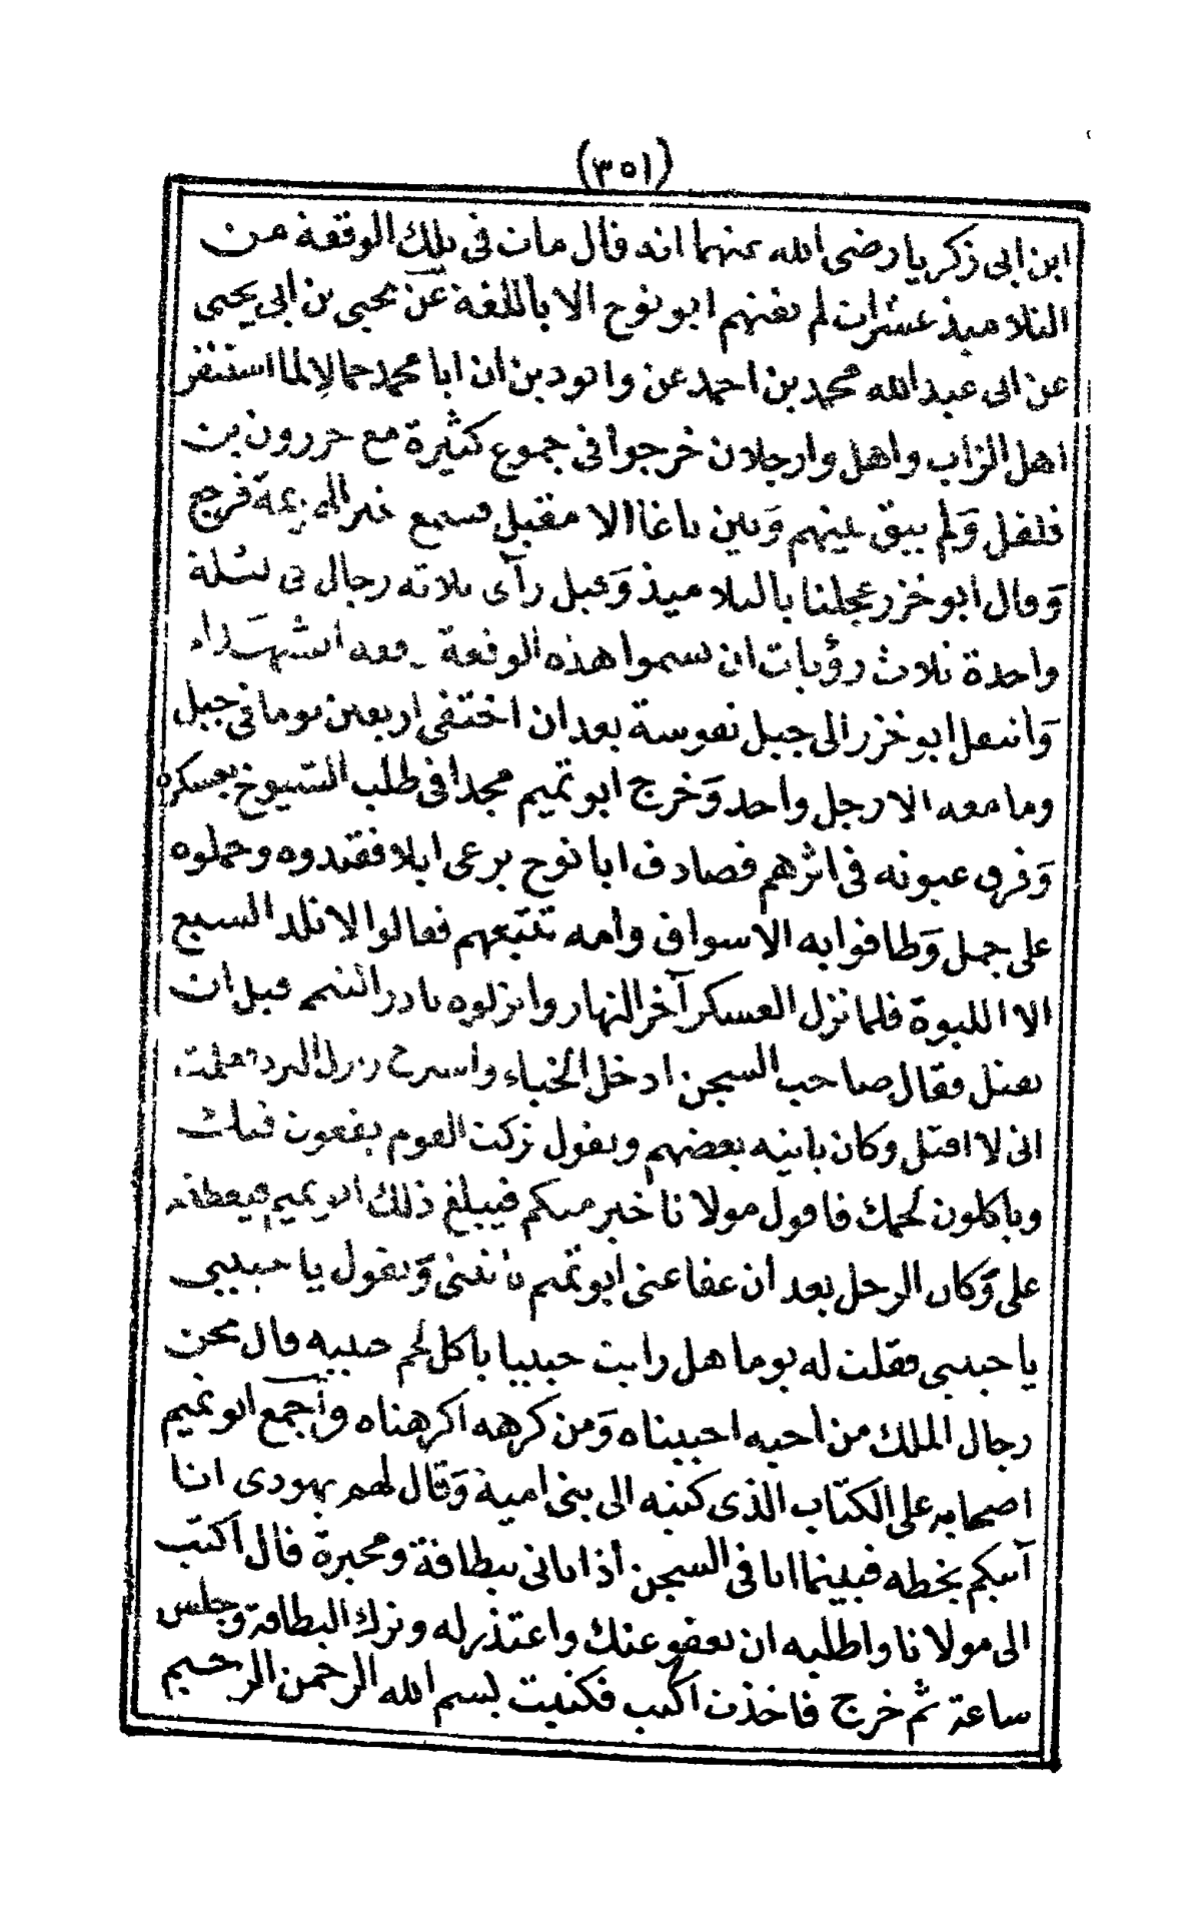 (٣٥١)
ابن ابى زكريا رضى الله عنهما انه قال مات فى تلك الوقعة من
التلاميذ عشرات لم يفتهم ابو نوح الا باللغة عن يحيى بن ابى يحيى
عن ابى عبد الله محمد بن احمد عن وانودين ان ابا محمد جمالا لما استنفر
اهل الزاب واهل وارجلان خرجوا فى جموع كثيرة مع خزرون بن
فلفل وَلم يبق بينهم وَبين باغاا الا مقيل فسمع خبر الهزيمة فرجع
وَقال ابو خزر عجلنا بالتلاميذ وَقيل رآى ثلاثه رجال فى ليلة
واحدة ثلاث رؤيات ان تسموا هذه الوقعة وقعه الشهداء
وَانتقل ابو خزر الى جبل نفوسة بعد ان اختفى اربعين يوما فى جبل
وما معه الا رجل واحد وَخرج ابو تميم مجدا فى طلب الشيوخ بعسكره
وَفرق عيونه فى اثرهم فصادف ابا نوح يرعى ابلا فقيدوه وحملوه
على جمل وَطافوا به الاسواق وامه تتتبعهم فقالوا لا تلد السبع
الا اللبوة فلما نزل العسكر آخر النهار وانزلوه نادر النسم قبل ان
يقتل فقال صاحب السجن ادخل الخباء واسترح نزل البرد فعلمت
انى لا اقتل وكان ياتيه بعضهم ويقول تركت القوم يقعون فيك
وياكلون لحمك فاقول مولانا خير منكم فيبلغ ذلك ابو تميم فيعطفه
على وَكان الرجل بعد ان عفا عنى ابو تميم ياتينى وَيقول يا حبيبى
يا حبيبى فقلت له يوما هل رايت حبيبا ياكل لحم حبيبه قال نحن
رجال الملك من احبه احببناه وَمن كرهه اكرهناه واجمع ابو تميم
اصحابه على الكتاب الذى كتبه الى بنى امية وَقال لهم يهودى انا
آتيكم بخطه فبينما انا فى السجن أذ اتانى ببطاقة ومحبرة قال اكتب
الى مولانا واطلبه ان يعفو عنك واعتذر له وترك البطاقة وجلس
ساعة ثم خرج فاخذت اكتب فكتبت بسم الله الرحمن الرحيم